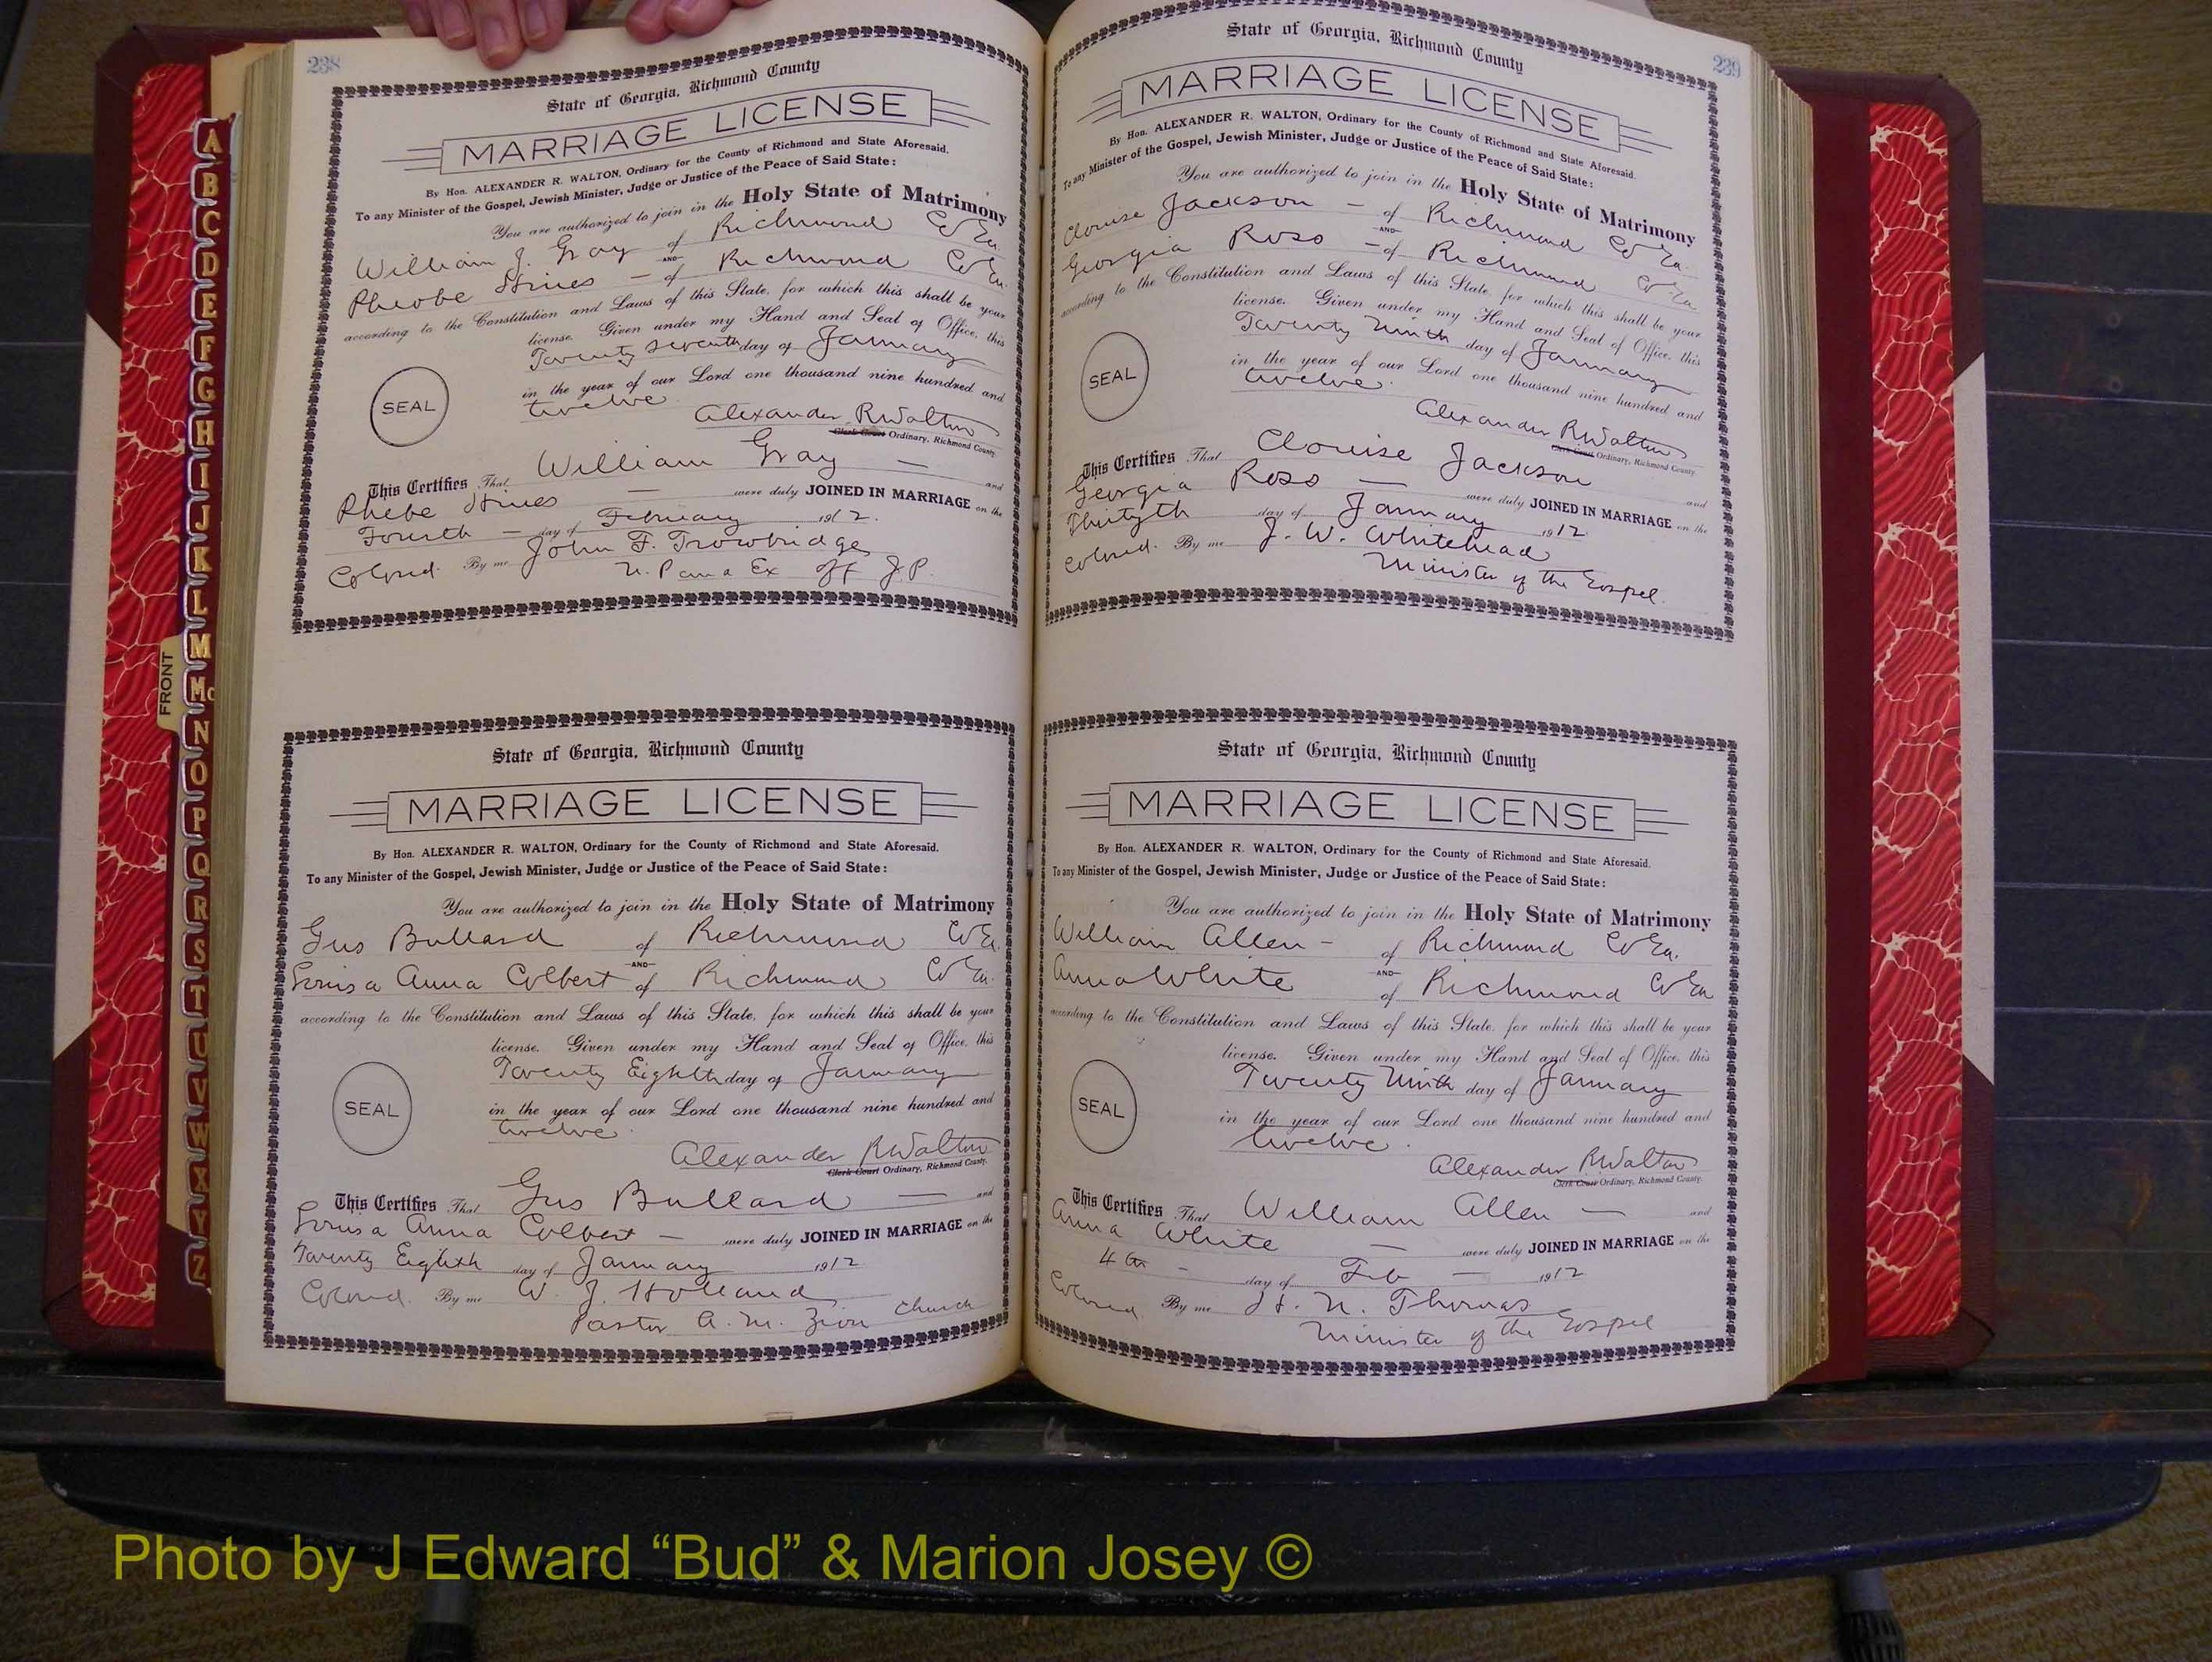 238
State of Georgia, Richmond County
MARRIAGE LICENSE
By Hon. ALEXANDER R. WALTON, Ordinary for the County of Richmond and State Aforesaid.
To any Minister of the Gospel, Jewish Minister, Judge or Justice of the Peace of Said State:
You are authorized to join in the Holy State of Matrimony
William J. Gray of Richmond Co Ga.
AND
Pheobe Hines - of Richmond Co Ga.
according to the Constitution and Laws of this State, for which this shall be your
license. Given under my Hand and Seal of Office, this
Twenty Seventh day of January
in the year of our Lord one thousand nine hundred and
SEAL
twelve.
Alexander R Walton
Clerk Court Ordinary, Richmond County.
This Certifies That William Gray — and
Phebe Hines — were duly JOINED IN MARRIAGE on the
Fourth — day of February 1912.
Colored. By me John F. Trowbridge
N. P. and Ex Off J.P.
State of Georgia, Richmond County
MARRIAGE LICENSE
By Hon. ALEXANDER R. WALTON, Ordinary for the County of Richmond and State Aforesaid.
To any Minister of the Gospel, Jewish Minister, Judge or Justice of the Peace of Said State:
You are authorized to join in the Holy State of Matrimony
Gus Bullard of Richmond Co Ga.
AND
Louisa Anna Colbert of Richmond Co Ga.
according to the Constitution and Laws of this State, for which this shall be your
license. Given under my Hand and Seal of Office, this
Twenty Eighth day of January
SEAL
in the year of our Lord one thousand nine hundred and
twelve.
Alexander R Walton
Clerk Court Ordinary, Richmond County.
This Certifies That Gus Bullard — and
Louisa Anna Colbert — were duly JOINED IN MARRIAGE on the
Twenty Eighth day of January 1912
Colored. By me W. J. Holland
Pastor A. M. Zion Church
239
State of Georgia, Richmond County
MARRIAGE LICENSE
By Hon. ALEXANDER R. WALTON, Ordinary for the County of Richmond and State Aforesaid.
To any Minister of the Gospel, Jewish Minister, Judge or Justice of the Peace of Said State:
You are authorized to join in the Holy State of Matrimony
Clouise Jackson - of Richmond Co Ga.
AND
Georgia Ross - of Richmond Co Ga
according to the Constitution and Laws of this State, for which this shall be your
license. Given under my Hand and Seal of Office, this
Twenty Ninth day of January
SEAL
in the year of our Lord one thousand nine hundred and
twelve.
Alexander R Walton
Clerk Court Ordinary, Richmond County.
This Certifies That Clouise Jackson and
Georgia Ross — were duly JOINED IN MARRIAGE on the
Thirtyth day of January 1912
Colored. By me J. W. Whitehead
Minister of the Gospel.
State of Georgia, Richmond County
MARRIAGE LICENSE
By Hon. ALEXANDER R. WALTON, Ordinary for the County of Richmond and State Aforesaid.
To any Minister of the Gospel, Jewish Minister, Judge or Justice of the Peace of Said State:
You are authorized to join in the Holy State of Matrimony
William Allen - of Richmond Co Ga.
AND
Anna White of Richmond Co Ga
according to the Constitution and Laws of this State, for which this shall be your
license. Given under my Hand and Seal of Office, this
Twenty Ninth day of January
SEAL
in the year of our Lord one thousand nine hundred and
twelve.
Alexander R Walton
Clerk Court Ordinary, Richmond County.
This Certifies That William Allen — and
Anna White — were duly JOINED IN MARRIAGE on the
4th - day of Feb — 1912
Colored By me H. N. Thomas
Minister of the Gospel
A
B
C
D
E
F
G
H
I
J
K
L
M
Mc
N
O
P
Q
R
S
T
U
V
W
X
Y
Z
FRONT
Photo by J Edward “Bud” & Marion Josey ©